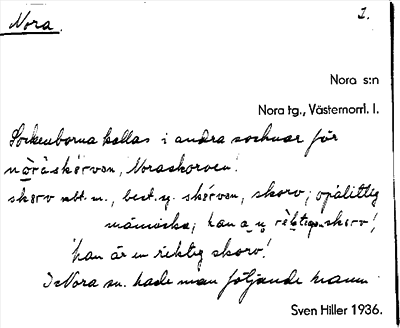 Nora. 1.
Nora s:n
Nora tg., Västernorrl. l.
Sockenborna kallas i andra socknar för
nòràskérven, Noraskorven!
skerv m., best. f. skérven, skorv; opålitlig
människa; han a n riktigen skerv!
'han är en riktig skorv!'
I Nora sn. hade man följande namn:
Sven Hiller 1936.